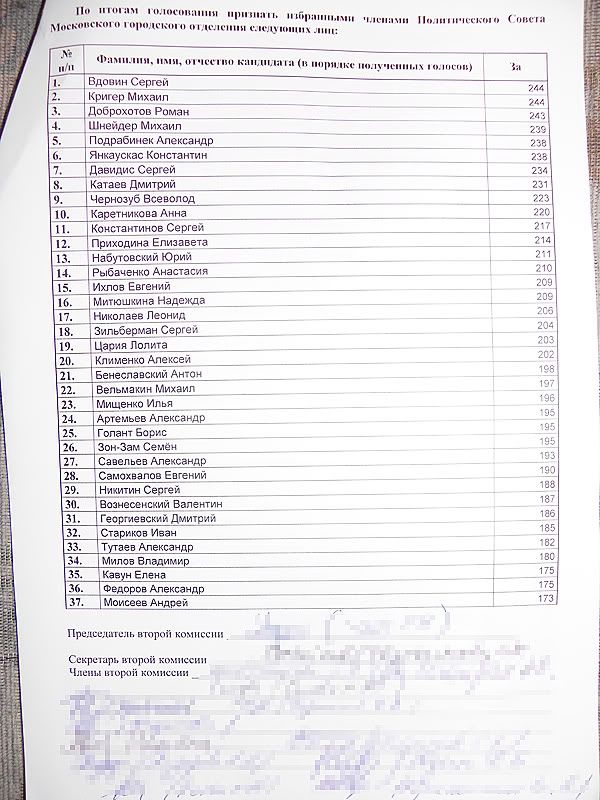 По итогам голосования признать избранными членами Политического Совета
Московского городского отделения следующих лиц:
№ п/п Фамилия, имя, отчество кандидата (в порядке полученных голосов) За
1. Вдовин Сергей 244
2. Кригер Михаил 244
3. Доброхотов Роман 243
4. Шнейдер Михаил 239
5. Подрабинек Александр 238
6. Янкаускас Константин 238
7. Давидис Сергей 234
8. Катаев Дмитрий 231
9. Чернозуб Всеволод 223
10. Каретникова Анна 220
11. Константинов Сергей 217
12. Приходина Елизавета 214
13. Набутовский Юрий 211
14. Рыбаченко Анастасия 210
15. Ихлов Евгений 209
16. Митюшкина Надежда 209
17. Николаев Леонид 206
18. Зильберман Сергей 204
19. Цария Лолита 203
20. Клименко Алексей 202
21. Бенеславский Антон 198
22. Вельмакин Михаил 197
23. Мищенко Илья 196
24. Артемьев Александр 195
25. Голант Борис 195
26. Зон-Зам Семён 195
27. Савельев Александр 193
28. Самохвалов Евгений 190
29. Никитин Сергей 188
30. Вознесенский Валентин 187
31. Георгиевский Дмитрий 186
32. Стариков Иван 185
33. Тутаев Александр 182
34. Милов Владимир 180
35. Кавун Елена 175
36. Федоров Александр 175
37. Моисеев Андрей 173
Председатель второй комиссии
Секретарь второй комиссии
Члены второй комиссии